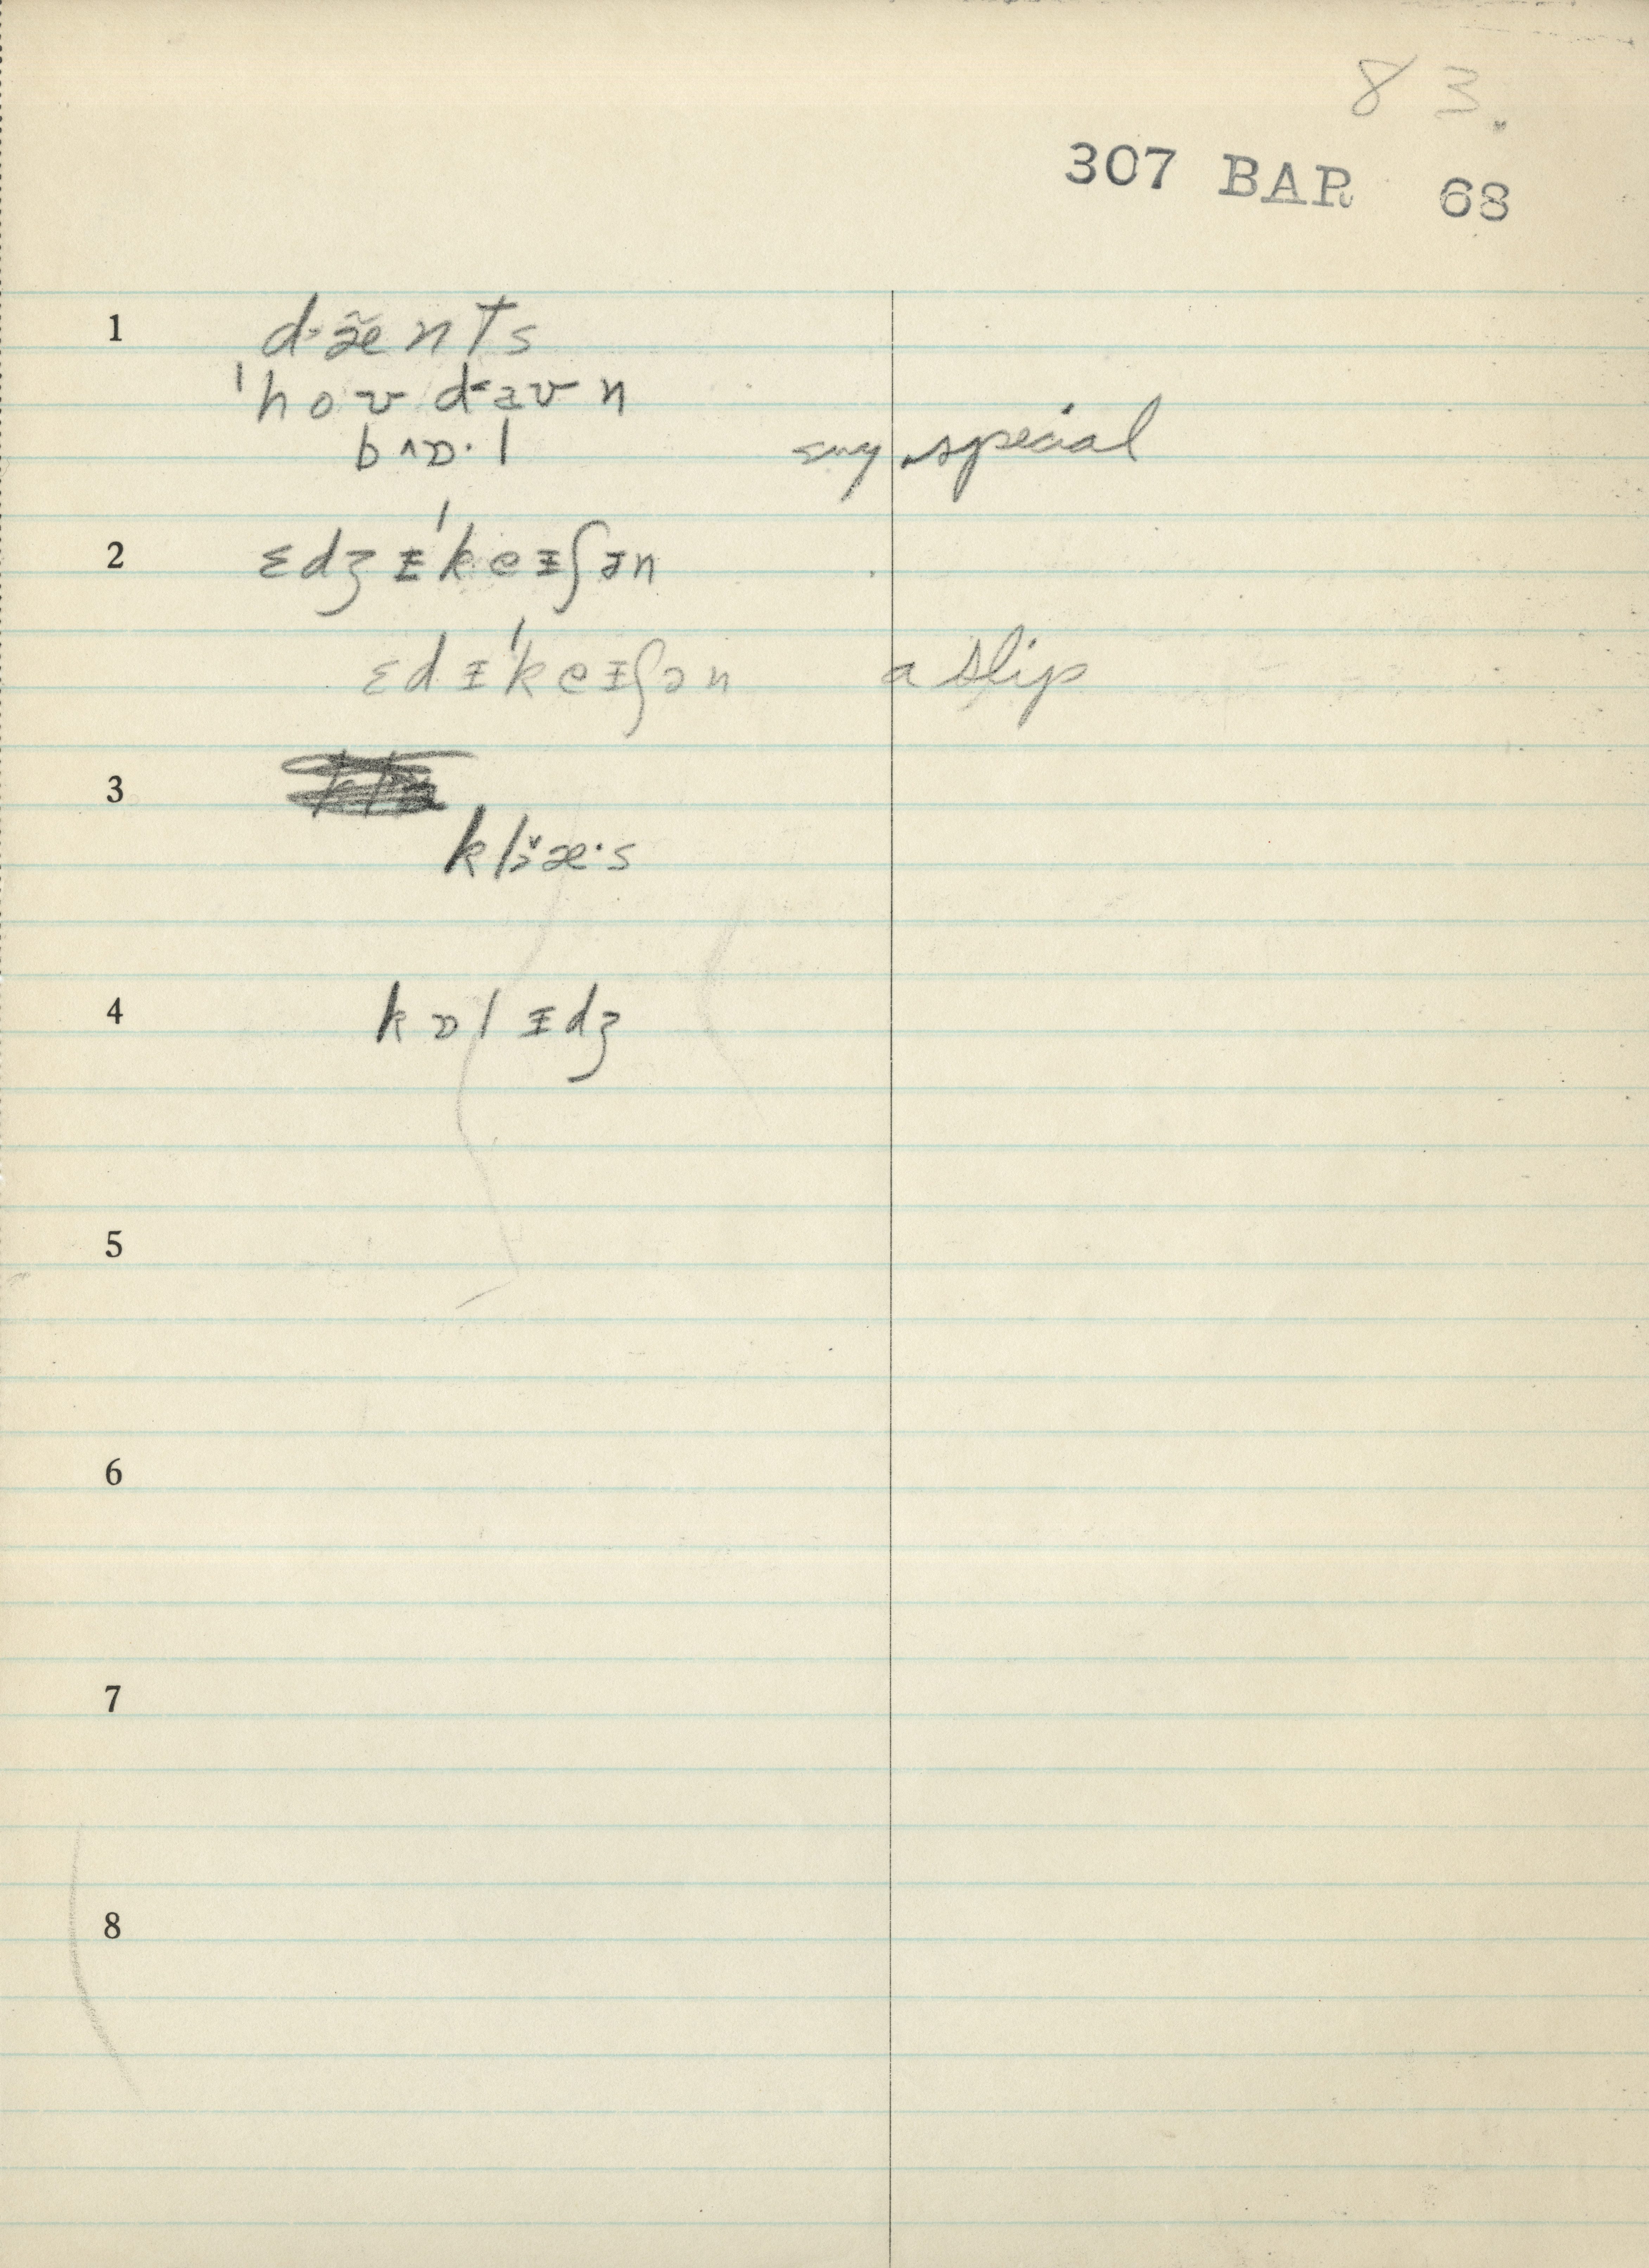 83.
307 BAR 68
1 d·æ̃nts
ˈhoʊdaʊn
bʌɒ·l any special
2 ɛdʒɪˈkeɪʃən
ɛdɪˈkeɪʃən a slip
3
4 kɒlɪdʒ
5
6
7
8